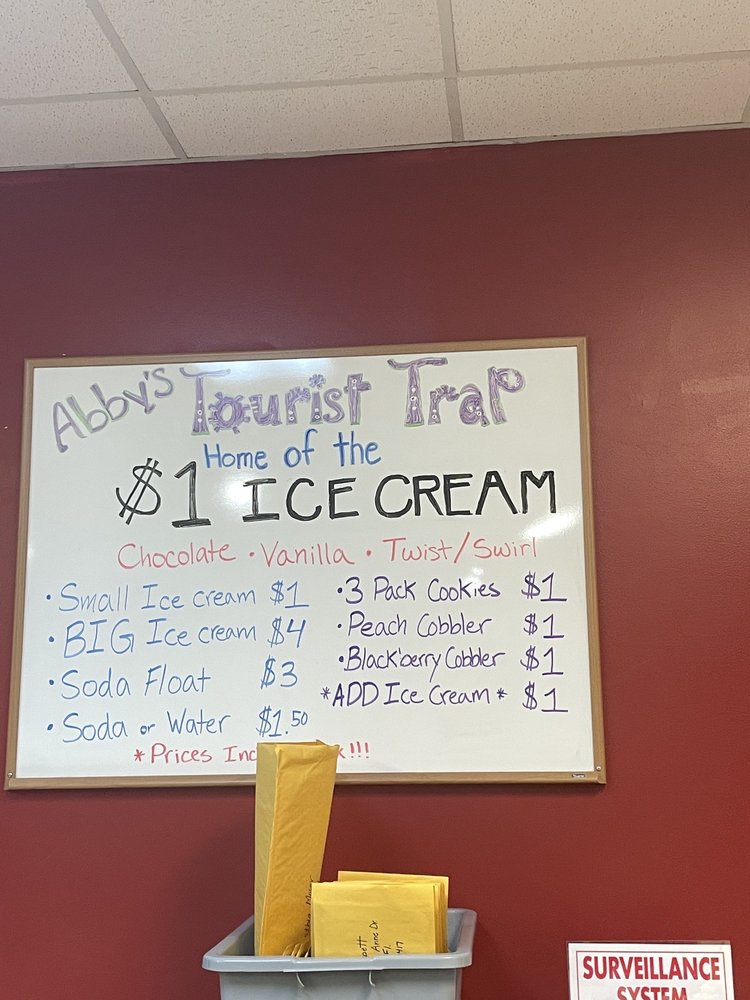 Abby's Tourist Trap
Home of the
$1 ICE CREAM
Chocolate • Vanilla • Twist/Swirl
• Small Ice cream $1
• BIG Ice cream $4
• Soda Float $3
• Soda or Water $1.50
• 3 Pack Cookies $1
• Peach Cobbler $1
• Black'berry Cobbler $1
*ADD Ice Cream* $1
*Prices !!!
Anne Dr
Fl.
SURVEILLANCE
SYSTEM